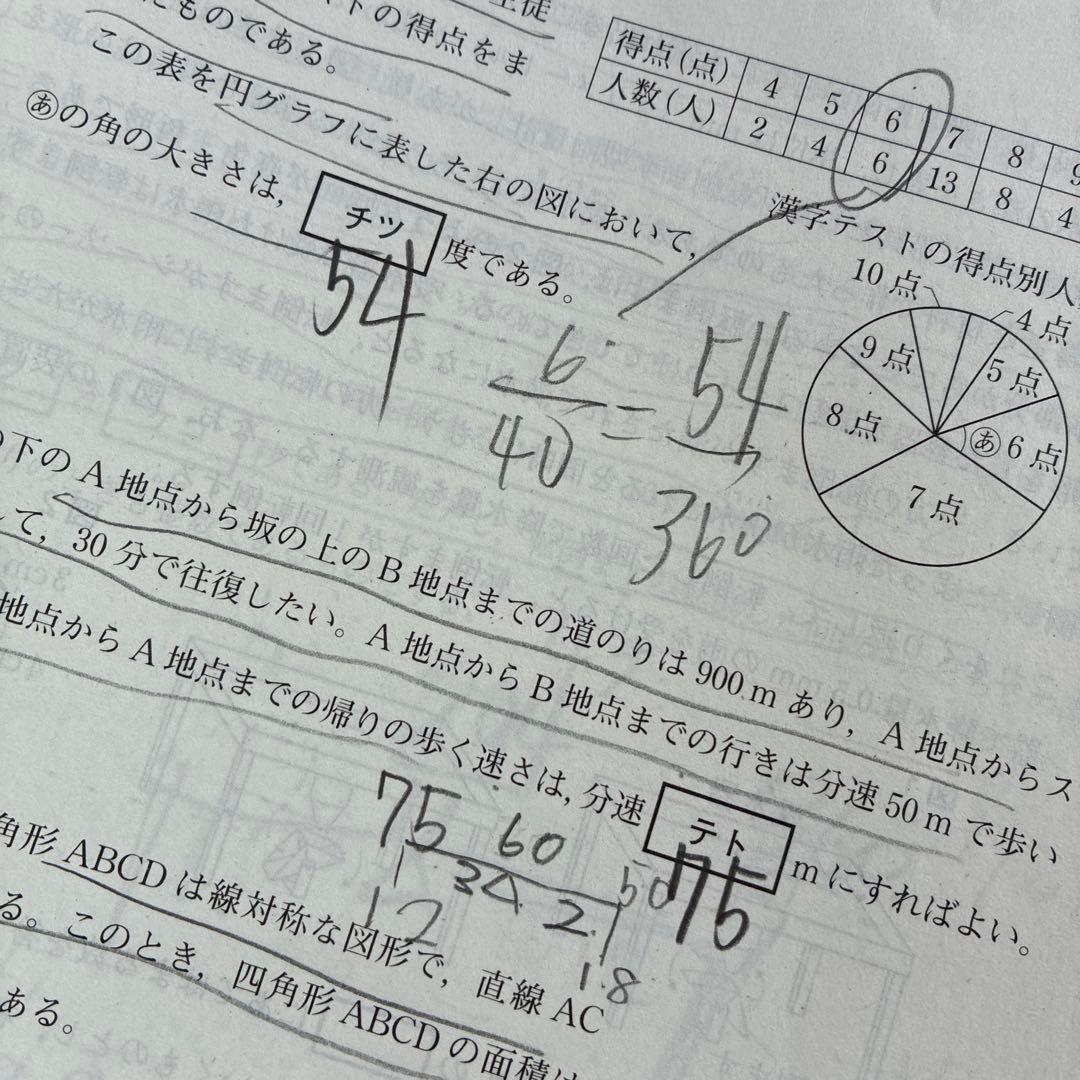 生徒
トの得点をま
たものである。
この表を円グラフに表した右の図において,
あの角の大きさは, チツ 度である。
54
得点(点) 4 5 6 7 8 9
人数(人) 2 4 6 13 8 4
漢字テストの得点別人
10点
4点
9点
5点
8点
あ 6点
7点
6/40 = 54/360
の下のA地点から坂の上のB地点までの道のりは900mあり, A地点からス
して, 30分で往復したい。A地点からB地点までの行きは分速50mで歩い
地点からA地点までの帰りの歩く速さは, 分速 テト mにすればよい。
75
75 60 50
3 2
12 18
角形ABCDは線対称な図形で, 直線AC
る。このとき, 四角形ABCDの面積は
ある。